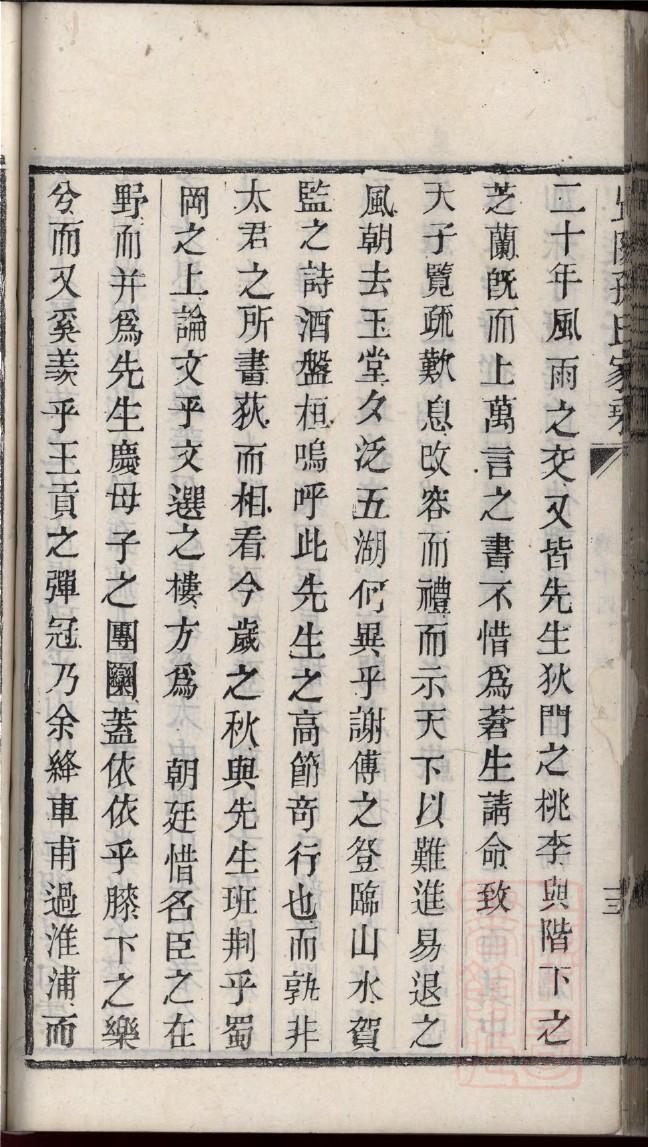 孫氏家乘
三
二十年風雨之交又皆先生狄門之桃李與階下之
芝蘭旣而上萬言之書不惜爲蒼生請命致
天子覽疏歎息改容而禮而示天下以難進易退之
風朝去玉堂夕泛五湖何異乎謝傅之登臨山水賀
監之詩酒盤桓嗚呼此先生之高節奇行也而孰非
太君之所畫荻而相看今歲之秋與先生班荆乎蜀
岡之上論文乎文選之樓方爲 朝廷惜名臣之在
野而并爲先生慶母子之團圞蓋依依乎膝下之樂
兮而又奚羨乎王貢之彈冠乃余絳車甫過淮浦而